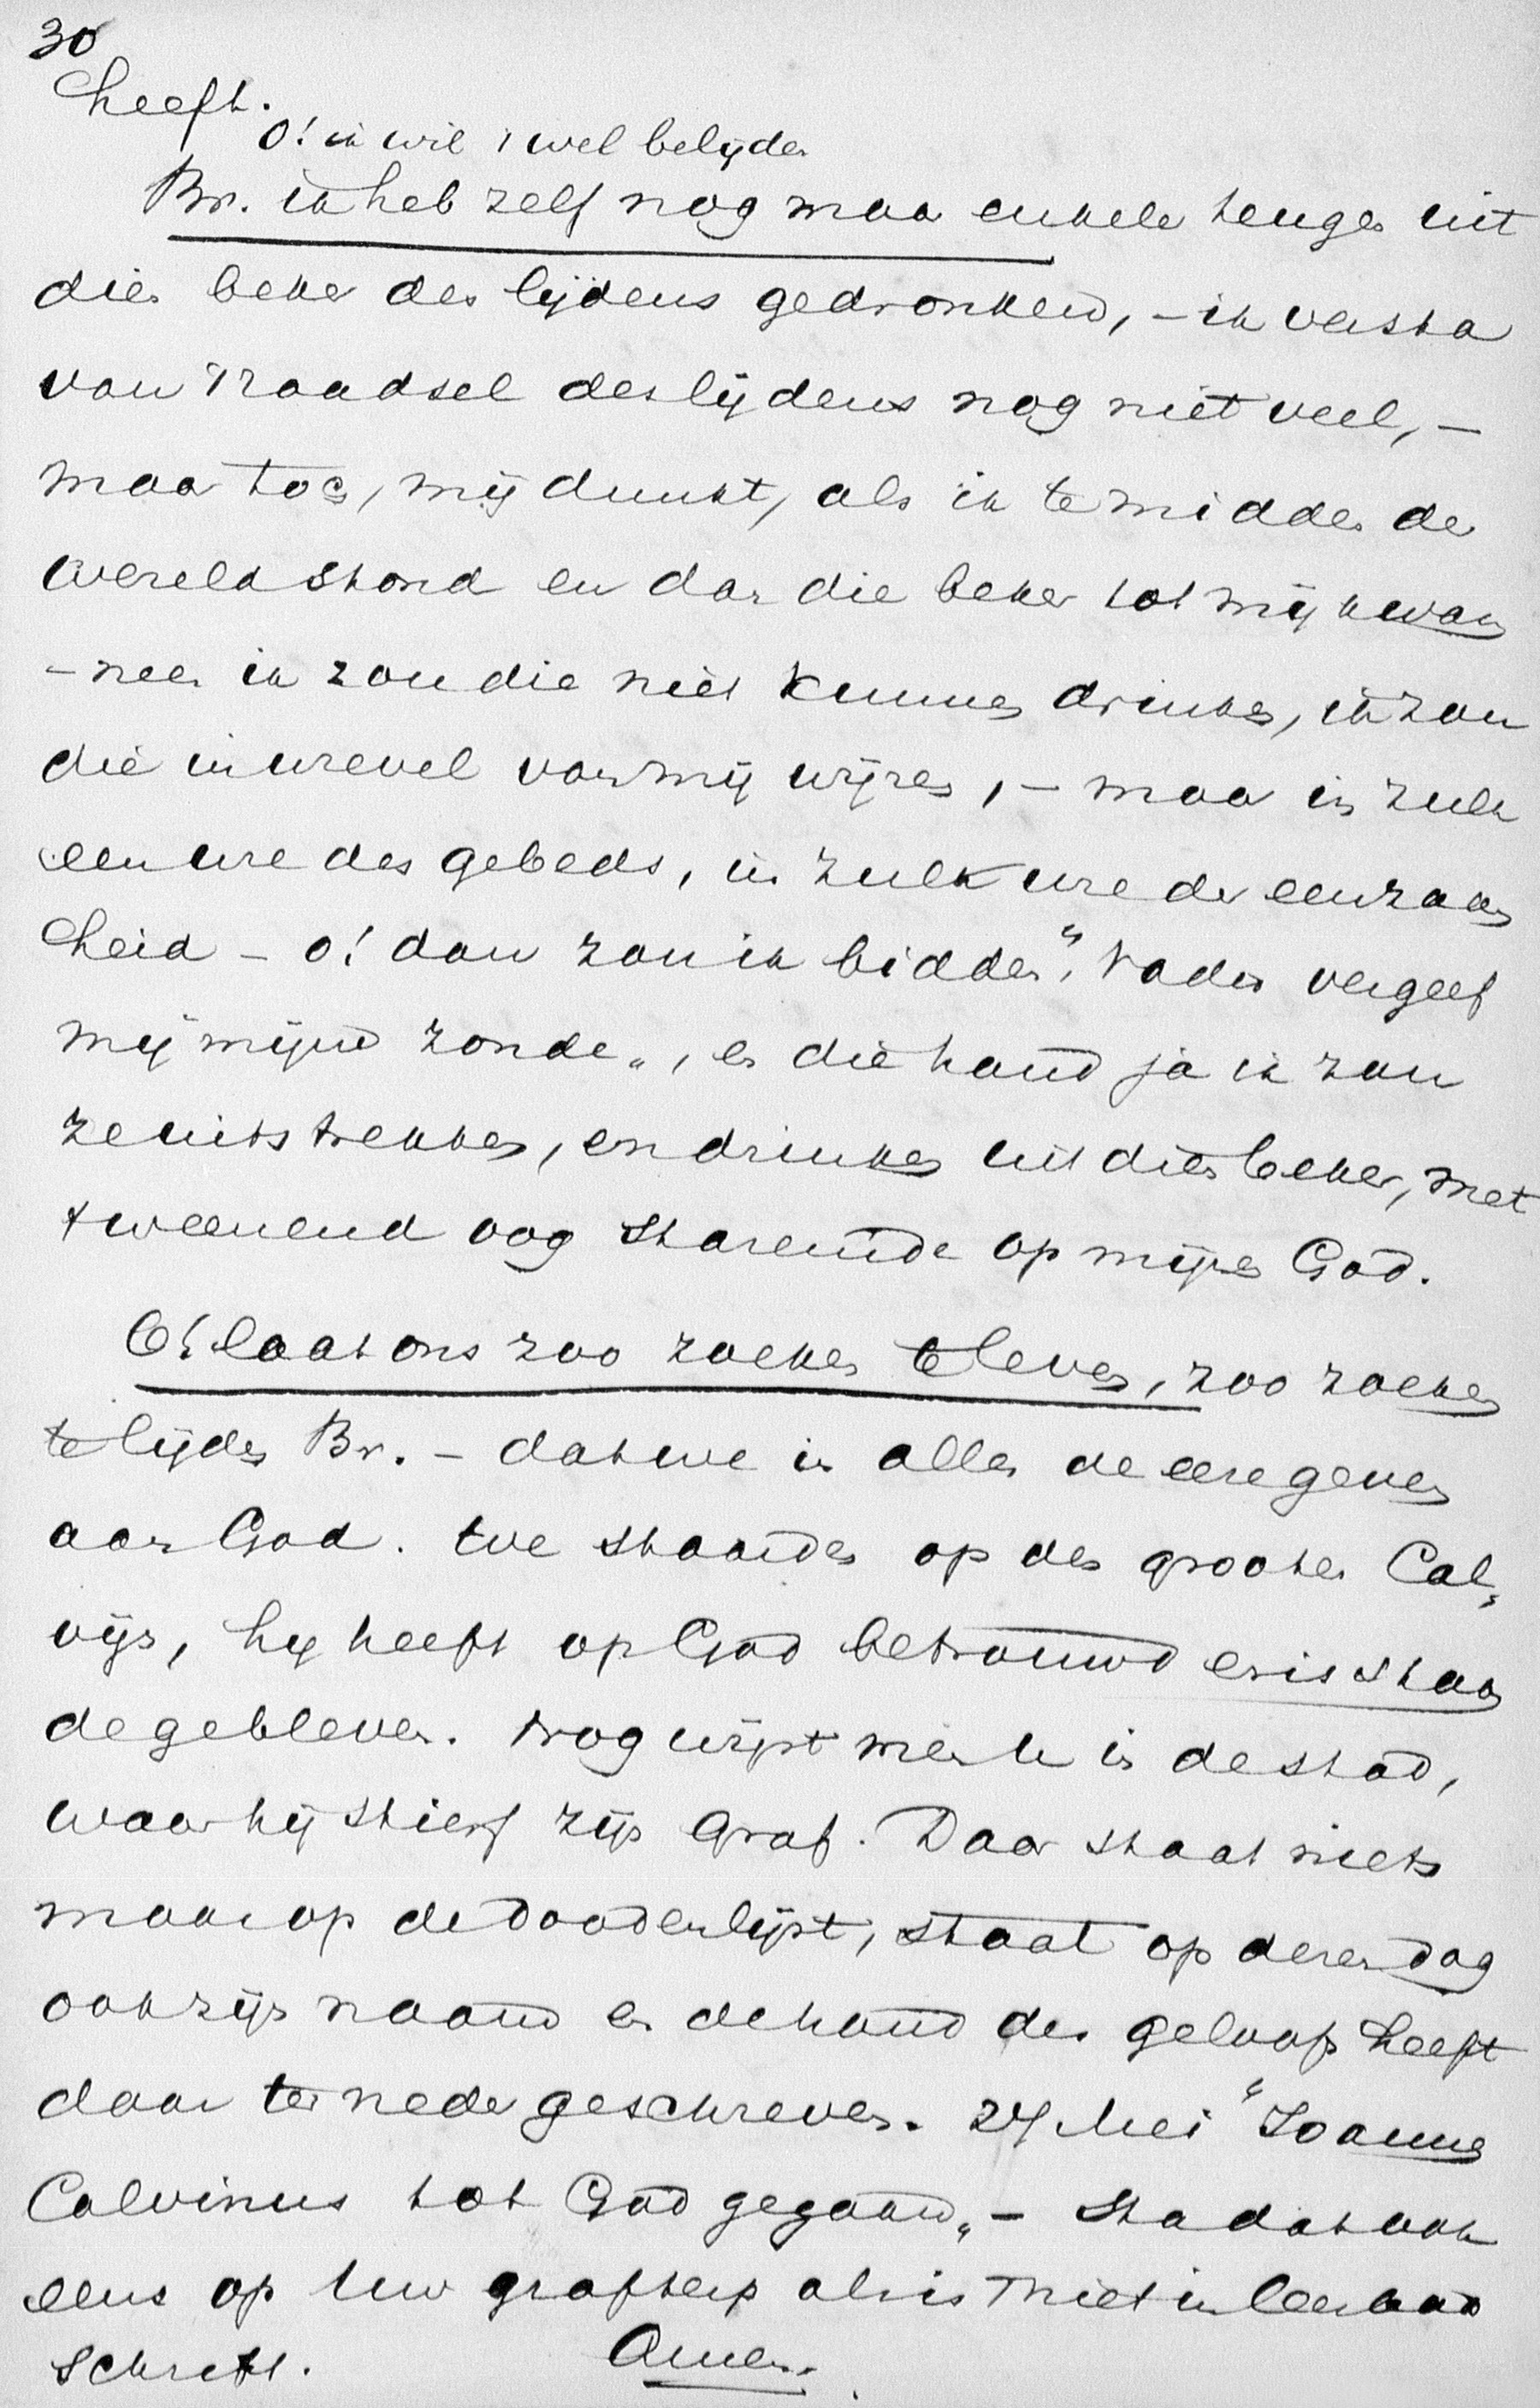 30
heeft.
O! ik wil 't wel belijden
Br. ik heb zelf nog maar enkele teugen uit
dien beker des lijdens gedronken, – ik versta
van 't raadsel des lijdens nog niet veel, –
maar toch, mij dunkt, als ik te midden der
wereld stond en dan die beker tot mij kwam
– neen ik zou die niet kunnen drinken, ik zou
die in wrevel van mij wijzen, – maar in zulk
een ure des gebeds, in zulk ure der eenzaam
heid – o! dan zou ik bidden, „Vader vergeef
mij mijne zonde„, en die hand ja ik zou
ze uitstrekken, en drinken uit dien beker, met
't weenend oog starende op mijn God.
O! laat ons zoo zoeken te leven, zoo zoeken
te lijden Br. – dat we in alles de eere geven
aan God. We staarden op den grooten Cal„
vijn, hij heeft op God betrouwd en is staan
de gebleven. Nog wijst men u in de stad,
waar hij stierf zijn graf. Daar staat niets
maar op de doodenlijst, staat op dezen dag
ook zijn naam en de hand des geloofs heeft
daar ter neder geschreven. 27 Mei „Joannes
Calvinus tot God gegaan„ – Sta dat ook
eens op Uw grafzerk al is 't niet in
schrift. Amen.